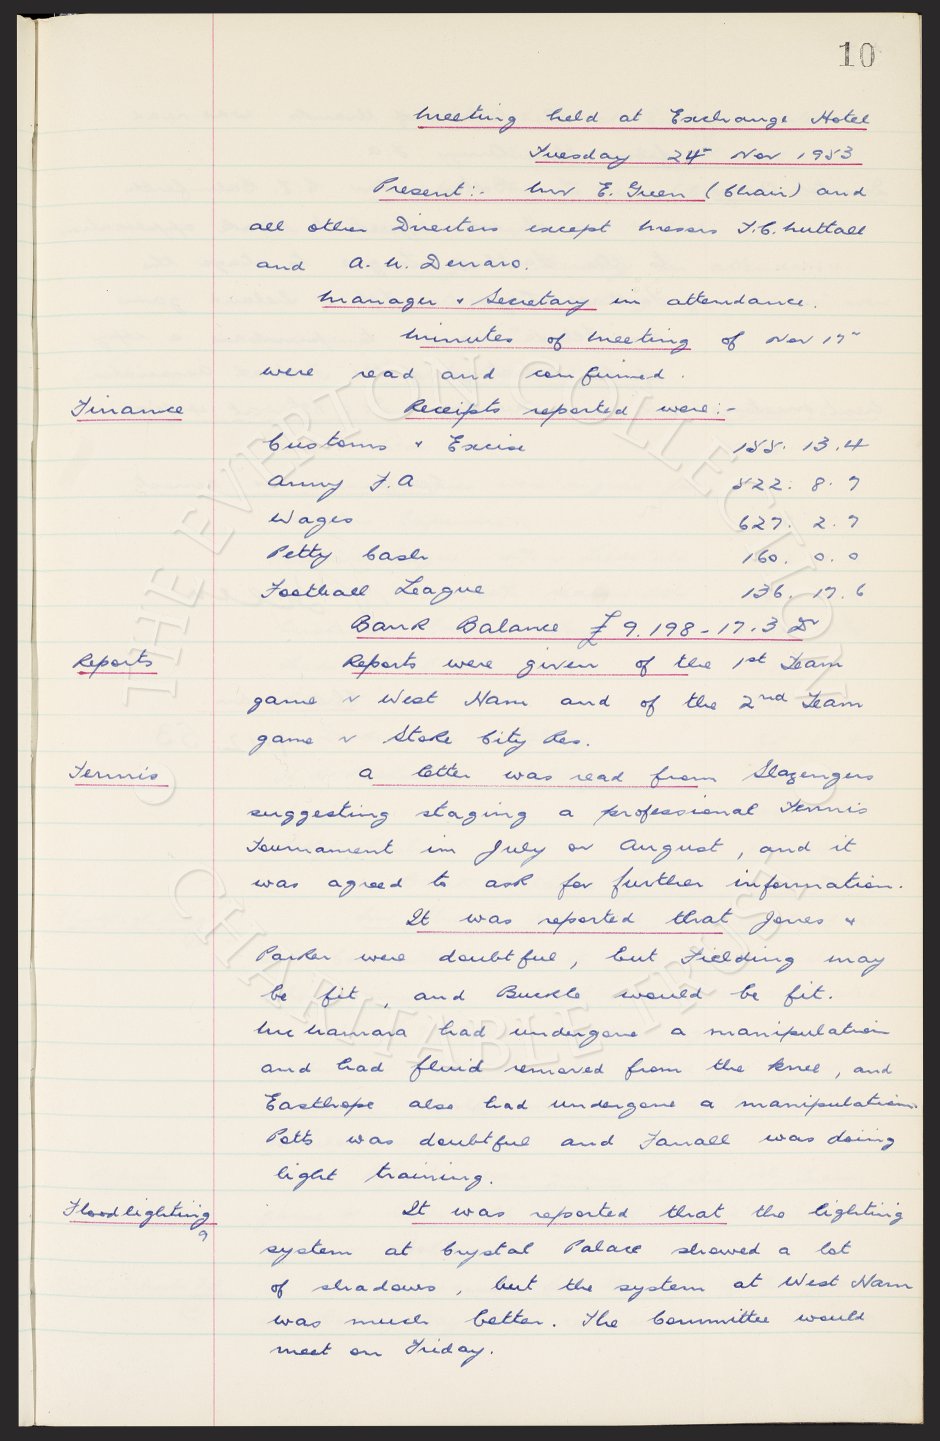 10
Meeting held at Exchange Hotel
Tuesday 24th Nov 1953
Present:- Mr E. Green (Chair) and
all other Directors except Messrs T.C. Nuttall
and A. W. Denaro.
Manager & Secretary in attendance.
Minutes of Meeting of Nov 17th
were read and confirmed.
Finance Receipts reported were:-
Customs & Excise 155. 13. 4
Army F.A 522. 8. 7
Wages 627. 2. 7
Petty Cash 160. 0. 0
Football League 136. 17. 6
Bank Balance £9.198-17.3 Dr
Reports Reports were given of the 1st Team
game v West Ham and of the 2nd Team
game v Stoke City Res.
Tennis A letter was read from Slazengers
suggesting staging a professional Tennis
Tournament in July or August, and it
was agreed to ask for further information.
It was reported that Jones &
Parker were doubtful, but Fielding may
be fit, and Buckle would be fit.
McNamara had undergone a manipulation
and had fluid removed from the knee, and
Easthope also had undergone a manipulation.
Potts was doubtful and Farrall was doing
light training.
Floodlighting It was reported that the lighting
system at Crystal Palace showed a lot
of shadows, but the system at West Ham
was much better. The Committee would
meet on Friday.
© THE EVERTON COLLECTION
CHARITABLE TRUST